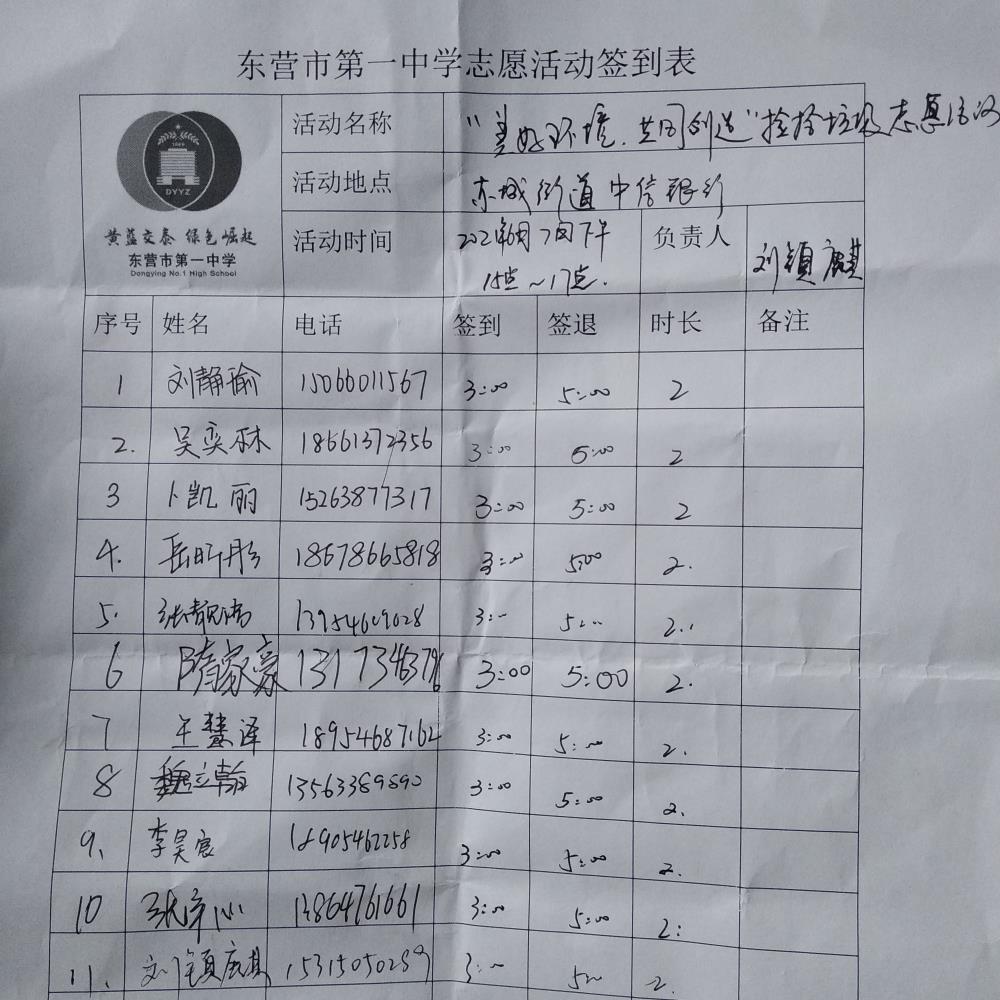 东营市第一中学志愿活动签到表
1869
DYYZ
黄蓝交泰 绿色崛起
东营市第一中学
Dongying No.1 High School
活动名称 "美好环境.共同创造"捡拾垃圾志愿活动
活动地点 东城街道中信银行
活动时间 2021年6月7日下午 15点～17点. 负责人 刘颖麒
序号 姓名 电话 签到 签退 时长 备注
1 刘静瑜 15066011567 3:00 5:00 2
2. 吴奕霖 18661372356 3:00 5:00 2
3 卜凯丽 15263877317 3:00 5:00 2
4. 岳昕彤 18678665818 3:00 5:00 2.
5. 张靓 13954609028 3:00 5:00 2.
6 隋家豪 13173463796 3:00 5:00 2.
7 王慧泽 18954687162 3:00 5:00 2.
8 魏立翰 13563389890 3:00 5:00 2.
9、 李昊宸 18905462258 3:00 5:00 2.
10 张心 13864761661 3:00 5:00 2:
11. 刘颖麒 15315050289 3:00 500 2.